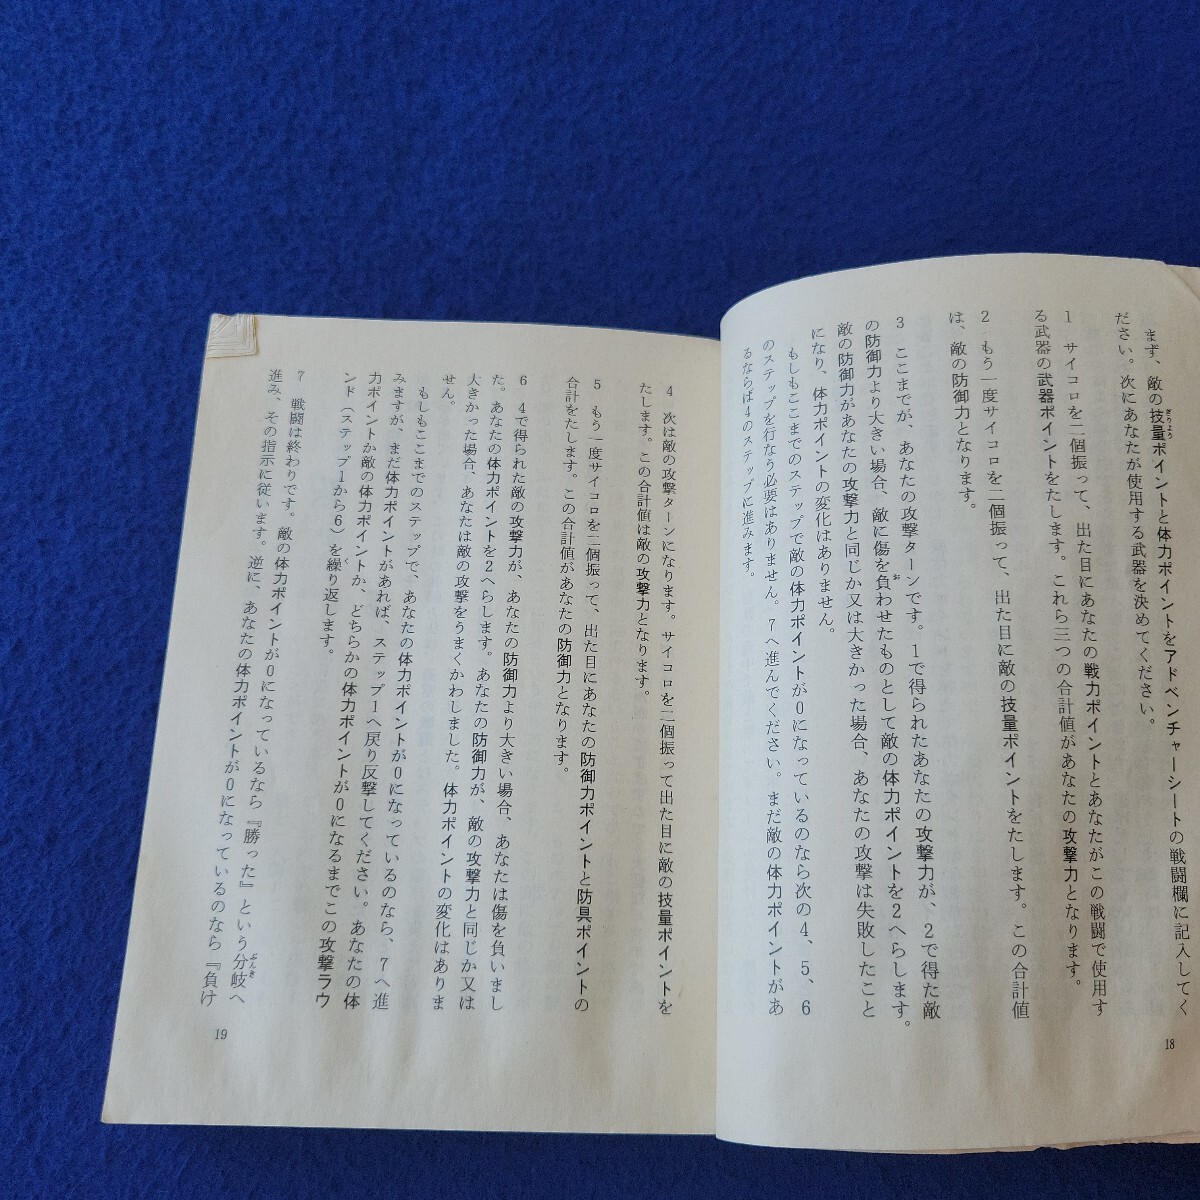 まず、敵の技量ポイントと体力ポイントをアドベンチャーシートの戦闘欄に記入してく
ださい。次にあなたが使用する武器を決めてください。
1 サイコロを二個振って、出た目にあなたの戦力ポイントとあなたがこの戦闘で使用す
る武器の武器ポイントをたします。これら三つの合計値があなたの攻撃力となります。
2 もう一度サイコロを二個振って、出た目に敵の技量ポイントをたします。この合計値
は、敵の防御力となります。
3 ここまでが、あなたの攻撃ターンです。1で得られたあなたの攻撃力が、2で得た敵
の防御力より大きい場合、敵に傷を負わせたものとして敵の体力ポイントを2へらします。
敵の防御力があなたの攻撃力と同じか又は大きかった場合、あなたの攻撃は失敗したこと
になり、体力ポイントの変化はありません。
もしもここまでのステップで敵の体力ポイントが0になっているのなら次の4、5、6
のステップを行なう必要はありません。7へ進んでください。まだ敵の体力ポイントがあ
るならば4のステップに進みます。
18
4 次は敵の攻撃ターンになります。サイコロを二個振って出た目に敵の技量ポイントを
たします。この合計値は敵の攻撃力となります。
5 もう一度サイコロを二個振って、出た目にあなたの防御力ポイントと防具ポイントの
合計をたします。この合計値があなたの防御力となります。
6 4で得られた敵の攻撃力が、あなたの防御力より大きい場合、あなたは傷を負いまし
た。あなたの体力ポイントを2へらします。あなたの防御力が、敵の攻撃力と同じか又は
大きかった場合、あなたは敵の攻撃をうまくかわしました。体力ポイントの変化はありま
せん。
もしもここまでのステップで、あなたの体力ポイントが0になっているのなら、7へ進
みますが、まだ体力ポイントがあれば、ステップ1へ戻り反撃してください。あなたの体
力ポイントか敵の体力ポイントか、どちらかの体力ポイントが0になるまでこの攻撃ラウ
ンド（ステップ1から6）を繰り返します。
7 戦闘は終わりです。敵の体力ポイントが0になっているなら『勝った』という分岐へ
進み、その指示に従います。逆に、あなたの体力ポイントが0になっているのなら『負け
19